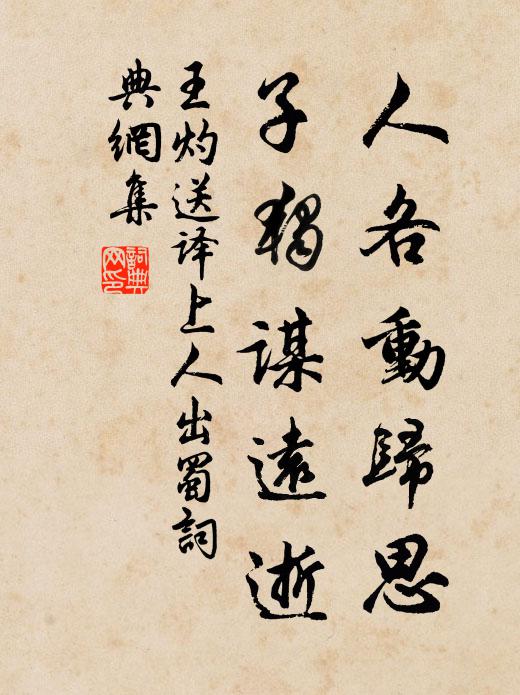 人各動歸思
子獨謀遠逝
王灼送译上人出蜀詞
典網集
詞典
网印